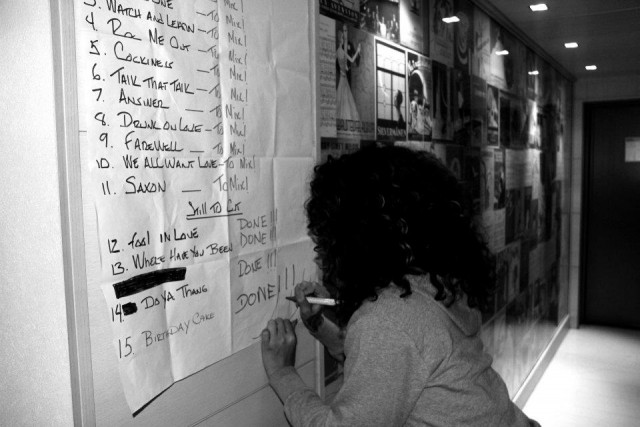 3. WATCH AND LEARN — TO MIX!
4. ROC ME OUT — TO MIX!
5. COCKINESS — TO MIX!
6. TALK THAT TALK — TO MIX!
7. ANSWER — TO MIX!
8. DRUNK ON LOVE — TO MIX!
9. FAREWELL — TO MIX!
10. WE ALL WANT LOVE — TO MIX!
11. SAXON — TO MIX!
STILL TO CUT
12. FOOL IN LOVE DONE!!!
13. WHERE HAVE YOU BEEN DONE!!!
DONE!!!
14. DO YA THANG DONE!!!
15. BIRTHDAY CAKE
SILVERMANEN